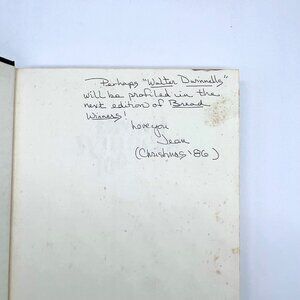 Perhaps "Walter Dwinnells"
will be profiled in the
next edition of Bread
Winners!
Love you
Jean
(Christmas '86)